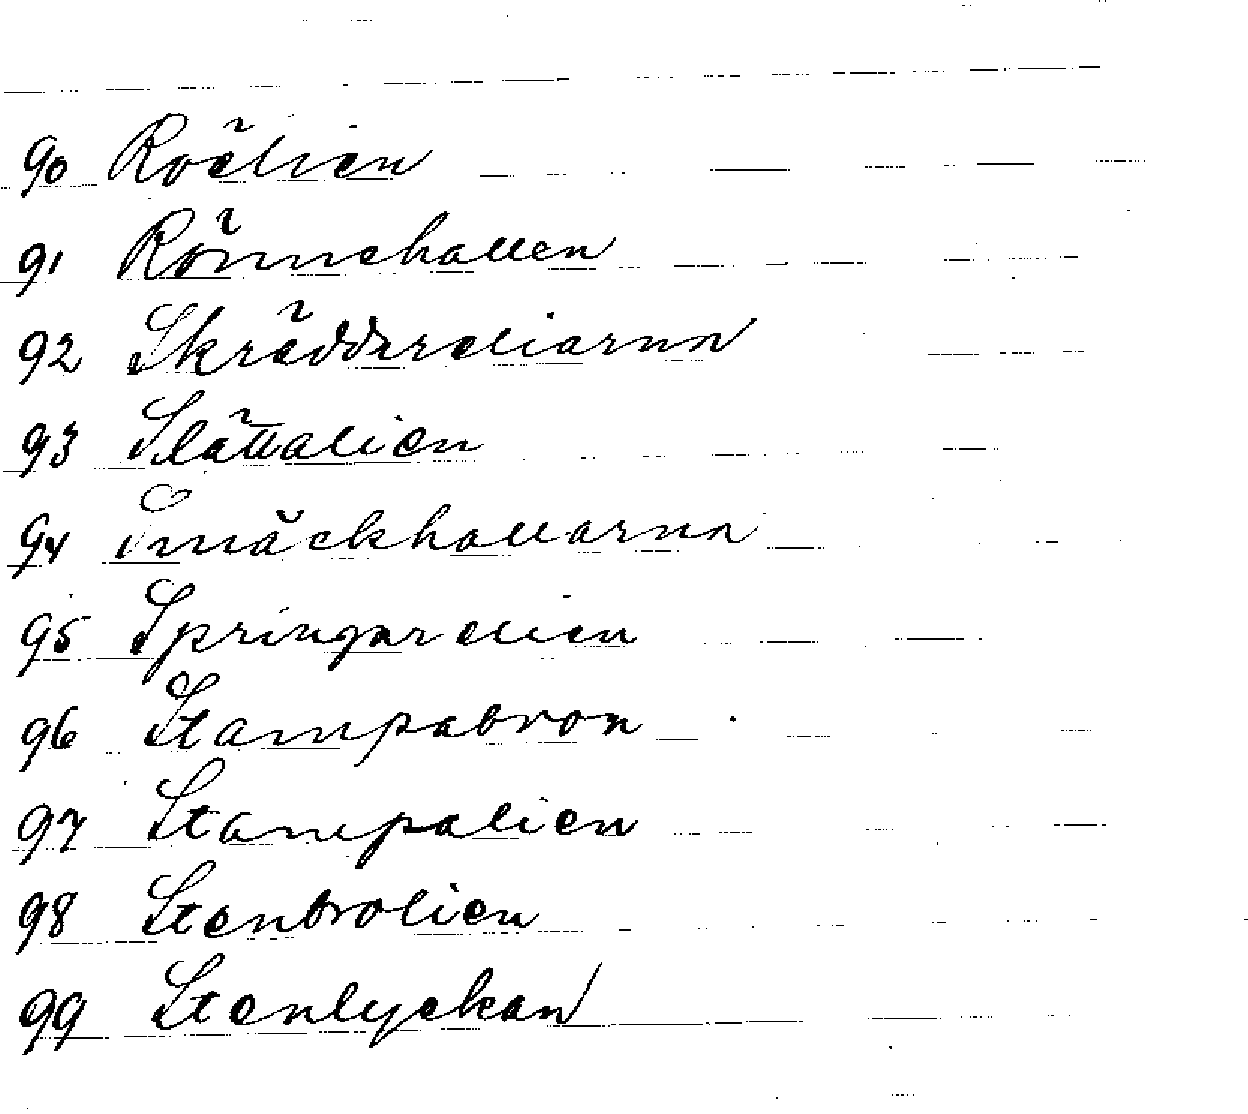 90 Roälien
91 Rönnehallen
92 Skräddereliarna
93 Slättalien
94 Smäckhallarna
95 Springarelien
96 Stampabron
97 Stampalien
98 Stenbrolien
99 Stenlyckan